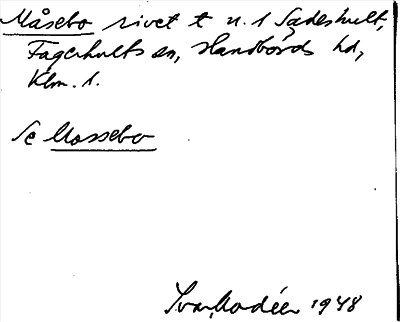 Måsebo rivet t n. 1 Sadeshult,
Fagerhults sn, Handbörds hd,
Klm. l.
Se Mossebo
Ivar Modéer 1948